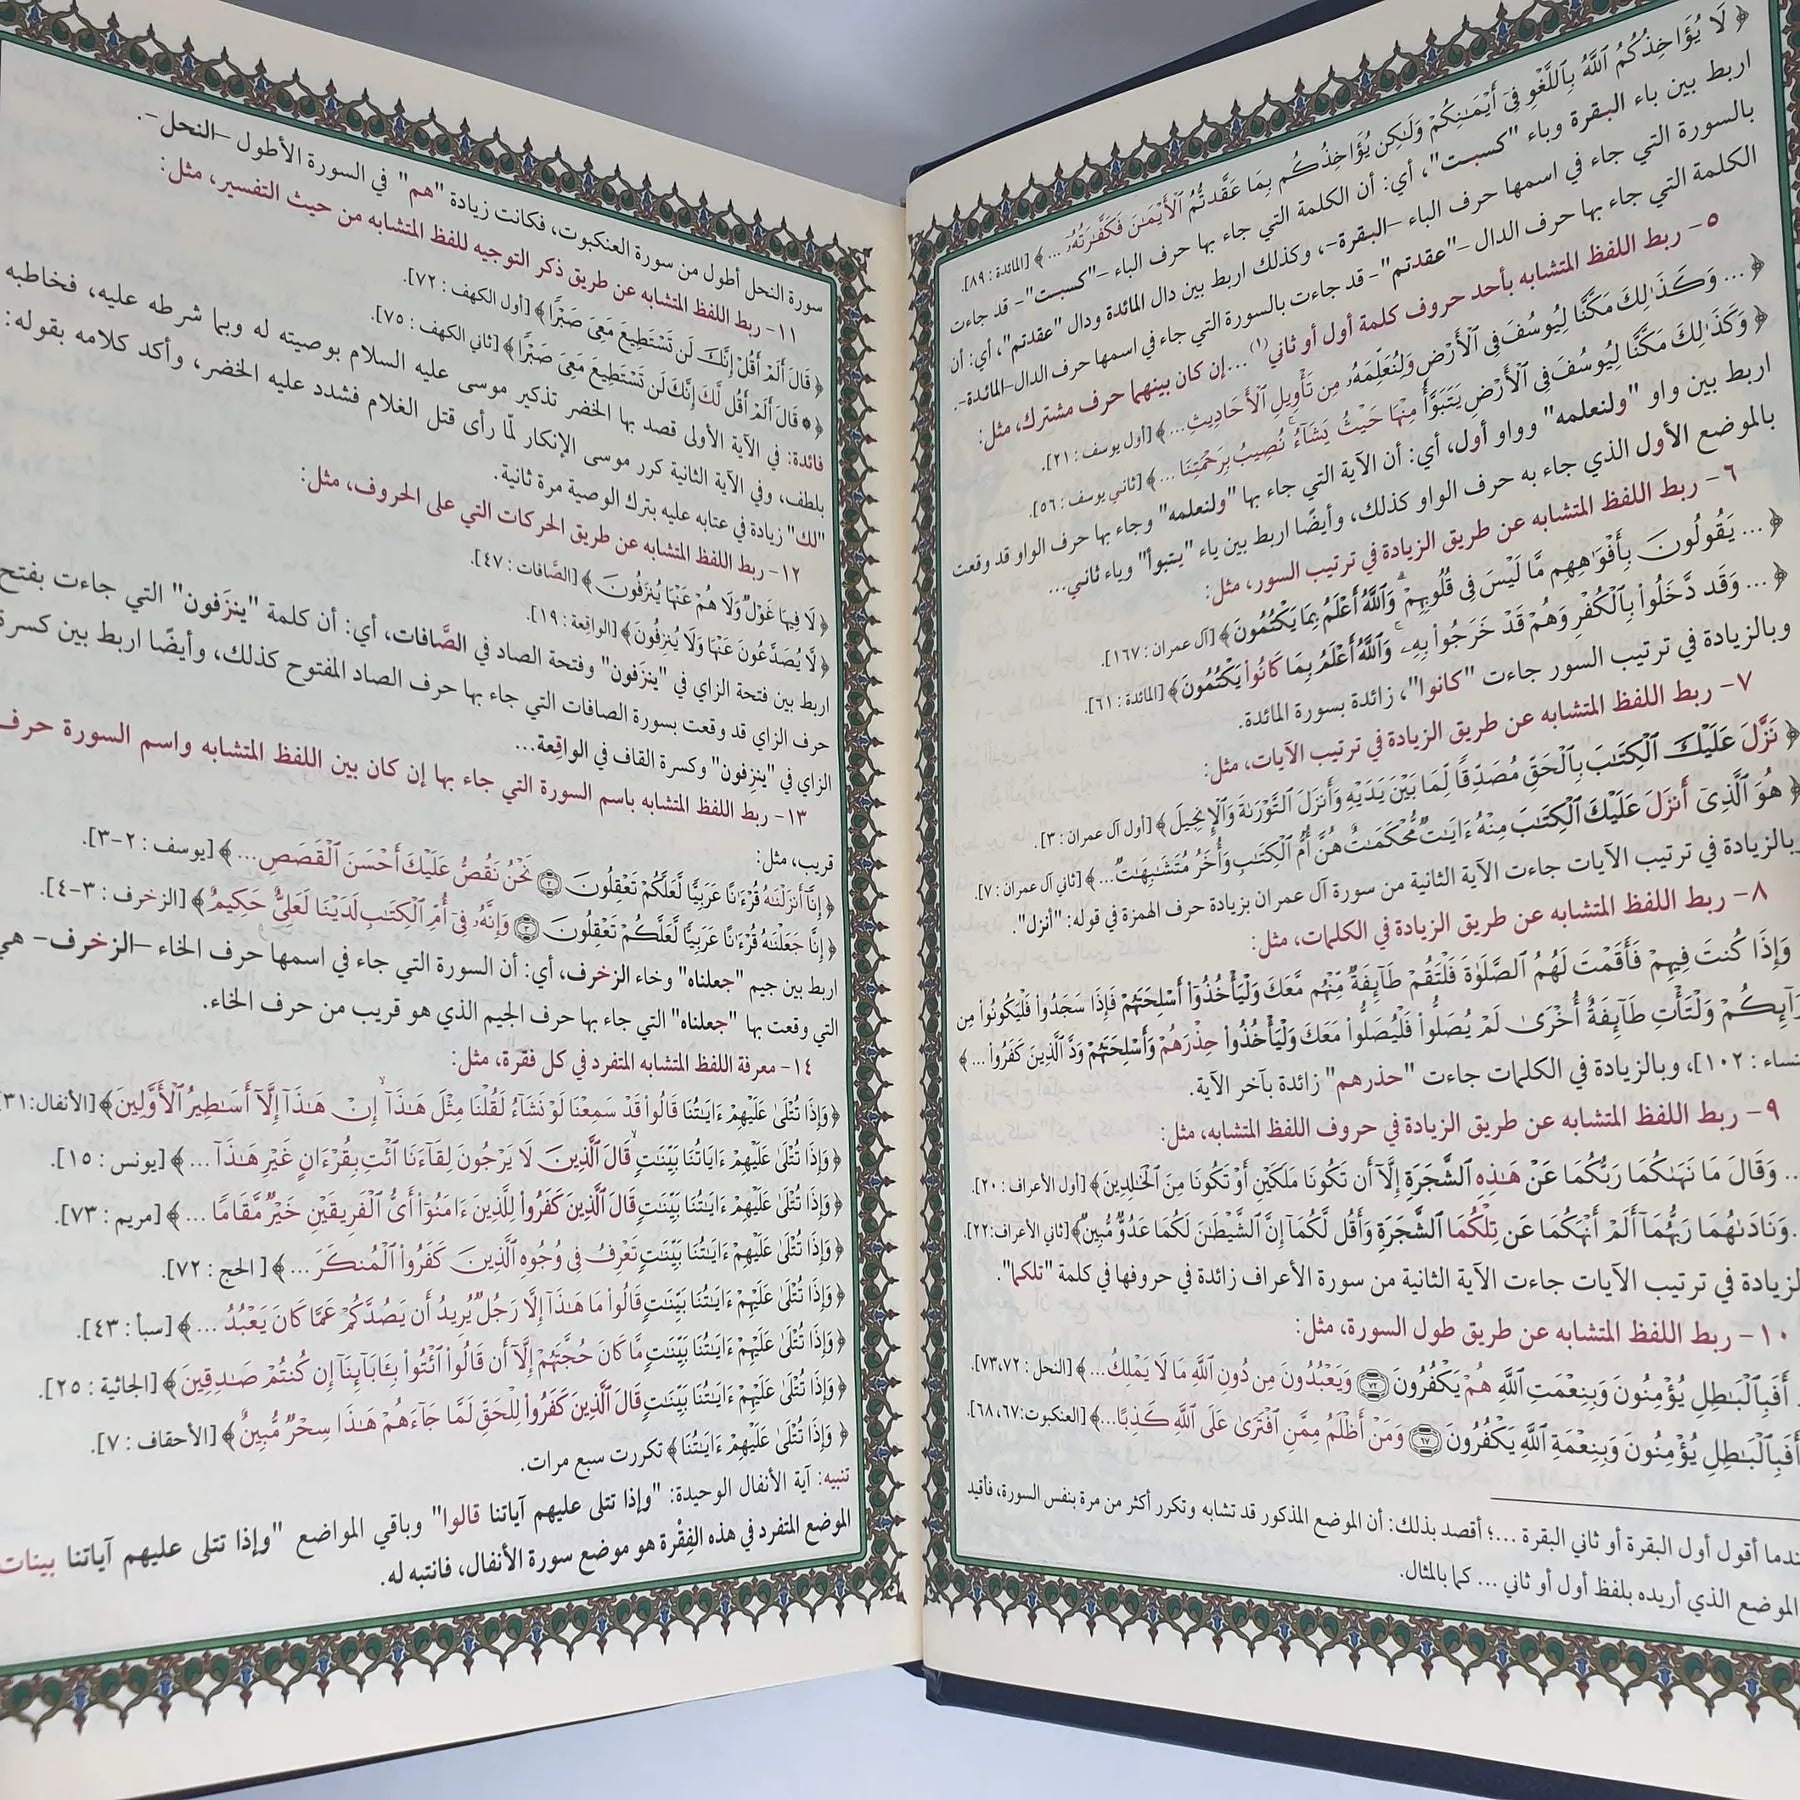 ﴿ لَا يُؤَاخِذُكُمُ ٱللَّهُ بِٱللَّغْوِ فِىٓ أَيْمَـٰنِكُمْ وَلَـٰكِن يُؤَاخِذُكُم بِمَا عَقَّدتُّمُ ٱلْأَيْمَـٰنَ فَكَفَّـٰرَتُهُۥٓ ... ﴾ [المائدة : ٨٩].
اربط بين باء البقرة وباء "كسبت"، أي: أن الكلمة التي جاء بها حرف الباء -"كسبت"- قد جاءت
بالسورة التي جاء في اسمها حرف الباء -البقرة-، وكذلك اربط بين دال المائدة ودال "عقدتم"، أي: أن
الكلمة التي جاء بها حرف الدال -"عقدتم"- قد جاءت بالسورة التي جاء في اسمها حرف الدال-المائدة-.
٥- ربط اللفظ المتشابه بأحد حروف كلمة أول أو ثاني(١) ...إن كان بينهما حرف مشترك، مثل:
﴿ ... وَكَذَٰلِكَ مَكَّنَّا لِيُوسُفَ فِى ٱلْأَرْضِ وَلِنُعَلِّمَهُۥ مِن تَأْوِيلِ ٱلْأَحَادِيثِ... ﴾ [أول يوسف : ٢١].
﴿ وَكَذَٰلِكَ مَكَّنَّا لِيُوسُفَ فِى ٱلْأَرْضِ يَتَبَوَّأُ مِنْهَا حَيْثُ يَشَآءُ ۚ نُصِيبُ بِرَحْمَتِنَا ... ﴾ [ثاني يوسف : ٥٦].
اربط بين واو "ولنعلمه" وواو أول، أي: أن الآية التي جاء بها "ولنعلمه" وجاء بها حرف الواو قد وقعت
بالموضع الأول الذي جاء به حرف الواو كذلك، وأيضًا اربط بين ياء "يتبوأ" وياء ثاني...
٦- ربط اللفظ المتشابه عن طريق الزيادة في ترتيب السور، مثل:
﴿ ... يَقُولُونَ بِأَفْوَٰهِهِم مَّا لَيْسَ فِى قُلُوبِهِمْ ۗ وَٱللَّهُ أَعْلَمُ بِمَا يَكْتُمُونَ ﴾ [آل عمران : ١٦٧].
﴿ ... وَقَد دَّخَلُوا۟ بِٱلْكُفْرِ وَهُمْ قَدْ خَرَجُوا۟ بِهِۦ ۚ وَٱللَّهُ أَعْلَمُ بِمَا كَانُوا۟ يَكْتُمُونَ ﴾ [المائدة : ٦١].
وبالزيادة في ترتيب السور جاءت "كانوا"، زائدة بسورة المائدة.
٧- ربط اللفظ المتشابه عن طريق الزيادة في ترتيب الآيات، مثل:
﴿ نَزَّلَ عَلَيْكَ ٱلْكِتَـٰبَ بِٱلْحَقِّ مُصَدِّقًا لِّمَا بَيْنَ يَدَيْهِ وَأَنزَلَ ٱلتَّوْرَىٰةَ وَٱلْإِنجِيلَ ﴾ [أول آل عمران : ٣].
﴿ هُوَ ٱلَّذِىٓ أَنزَلَ عَلَيْكَ ٱلْكِتَـٰبَ مِنْهُ ءَايَـٰتٌ مُّحْكَمَـٰتٌ هُنَّ أُمُّ ٱلْكِتَـٰبِ وَأُخَرُ مُتَشَـٰبِهَـٰتٌ... ﴾ [ثاني آل عمران : ٧].
وبالزيادة في ترتيب الآيات جاءت الآية الثانية من سورة آل عمران بزيادة حرف الهمزة في قوله: "أنزل".
٨- ربط اللفظ المتشابه عن طريق الزيادة في الكلمات، مثل:
وَإِذَا كُنتَ فِيهِمْ فَأَقَمْتَ لَهُمُ ٱلصَّلَوٰةَ فَلْتَقُمْ طَآئِفَةٌ مِّنْهُم مَّعَكَ وَلْيَأْخُذُوٓا۟ أَسْلِحَتَهُمْ فَإِذَا سَجَدُوا۟ فَلْيَكُونُوا۟ مِن
رَآئِكُمْ وَلْتَأْتِ طَآئِفَةٌ أُخْرَىٰ لَمْ يُصَلُّوا۟ فَلْيُصَلُّوا۟ مَعَكَ وَلْيَأْخُذُوا۟ حِذْرَهُمْ وَأَسْلِحَتَهُمْ وَدَّ ٱلَّذِينَ كَفَرُوا۟ ... ﴾
نساء : ١٠٢]، وبالزيادة في الكلمات جاءت "حذرهم" زائدة بآخر الآية.
٩- ربط اللفظ المتشابه عن طريق الزيادة في حروف اللفظ المتشابه، مثل:
... وَقَالَ مَا نَهَىٰكُمَا رَبُّكُمَا عَنْ هَـٰذِهِ ٱلشَّجَرَةِ إِلَّآ أَن تَكُونَا مَلَكَيْنِ أَوْ تَكُونَا مِنَ ٱلْخَـٰلِدِينَ ﴾ [أول الأعراف : ٢٠].
..وَنَادَىٰهُمَا رَبُّهُمَآ أَلَمْ أَنْهَكُمَا عَن تِلْكُمَا ٱلشَّجَرَةِ وَأَقُل لَّكُمَآ إِنَّ ٱلشَّيْطَـٰنَ لَكُمَا عَدُوٌّ مُّبِينٌ﴾[ثاني الأعراف:٢٢].
لزيادة في ترتيب الآيات جاءت الآية الثانية من سورة الأعراف زائدة في حروفها في كلمة "تلكما".
١٠- ربط اللفظ المتشابه عن طريق طول السورة، مثل:
.. أَفَبِٱلْبَـٰطِلِ يُؤْمِنُونَ وَبِنِعْمَتِ ٱللَّهِ هُمْ يَكْفُرُونَ ٧٢ وَيَعْبُدُونَ مِن دُونِ ٱللَّهِ مَا لَا يَمْلِكُ... ﴾ [النحل : ٧٣،٧٢].
أَفَبِٱلْبَـٰطِلِ يُؤْمِنُونَ وَبِنِعْمَةِ ٱللَّهِ يَكْفُرُونَ ٦٧ وَمَنْ أَظْلَمُ مِمَّنِ ٱفْتَرَىٰ عَلَى ٱللَّهِ كَذِبًا...﴾ [العنكبوت:٦٨،٦٧].
ندما أقول أول البقرة أو ثاني البقرة ...؛ أقصد بذلك: أن الموضع المذكور قد تشابه وتكرر أكثر من مرة بنفس السورة، فأقيد
الموضع الذي أريده بلفظ أول أو ثاني ... كما بالمثال.
سورة النحل أطول من سورة العنكبوت، فكانت زيادة "هم" في السورة الأطول -النحل-.
١١- ربط اللفظ المتشابه عن طريق ذكر التوجيه للفظ المتشابه من حيث التفسير، مثل:
﴿ قَالَ أَلَمْ أَقُلْ إِنَّكَ لَن تَسْتَطِيعَ مَعِىَ صَبْرًا ﴾ [أول الكهف : ٧٢].
﴿ ۞ قَالَ أَلَمْ أَقُل لَّكَ إِنَّكَ لَن تَسْتَطِيعَ مَعِىَ صَبْرًا ﴾ [ثاني الكهف : ٧٥].
فائدة: في الآية الأولى قصد بها الخضر تذكير موسى عليه السلام بوصيته له وبما شرطه عليه، فخاطبه
بلطف، وفي الآية الثانية كرر موسى الإنكار لمّا رأى قتل الغلام فشدد عليه الخضر، وأكد كلامه بقوله:
"لك" زيادة في عتابه عليه بترك الوصية مرة ثانية.
١٢- ربط اللفظ المتشابه عن طريق الحركات التي على الحروف، مثل:
﴿ لَا فِيهَا غَوْلٌ وَلَا هُمْ عَنْهَا يُنزَفُونَ ﴾ [الصَّافات : ٤٧].
﴿ لَّا يُصَدَّعُونَ عَنْهَا وَلَا يُنزِفُونَ﴾ [الواقِعة : ١٩].
اربط بين فتحة الزاي في "ينزَفون" وفتحة الصاد في الصَّافات، أي: أن كلمة "ينزَفون" التي جاءت بفتح
حرف الزاي قد وقعت بسورة الصافات التي جاء بها حرف الصاد المفتوح كذلك، وأيضًا اربط بين كسرة
الزاي في "ينزِفون" وكسرة القاف في الواقِعة...
١٣- ربط اللفظ المتشابه باسم السورة التي جاء بها إن كان بين اللفظ المتشابه واسم السورة حرف
قريب، مثل:
﴿ إِنَّآ أَنزَلْنَـٰهُ قُرْءَٰنًا عَرَبِيًّا لَّعَلَّكُمْ تَعْقِلُونَ ٢ نَحْنُ نَقُصُّ عَلَيْكَ أَحْسَنَ ٱلْقَصَصِ ... ﴾ [يوسف : ٢-٣].
﴿ إِنَّا جَعَلْنَـٰهُ قُرْءَٰنًا عَرَبِيًّا لَّعَلَّكُمْ تَعْقِلُونَ ٣ وَإِنَّهُۥ فِىٓ أُمِّ ٱلْكِتَـٰبِ لَدَيْنَا لَعَلِىٌّ حَكِيمٌ﴾ [الزخرف : ٣-٤].
اربط بين جيم "جعلناه" وخاء الزخرف، أي: أن السورة التي جاء في اسمها حرف الخاء -الزخرف- هي
التي وقعت بها "جعلناه" التي جاء بها حرف الجيم الذي هو قريب من حرف الخاء.
١٤- معرفة اللفظ المتشابه المتفرد في كل فقرة، مثل:
﴿ وَإِذَا تُتْلَىٰ عَلَيْهِمْ ءَايَـٰتُنَا قَالُوا۟ قَدْ سَمِعْنَا لَوْ نَشَآءُ لَقُلْنَا مِثْلَ هَـٰذَآ ۙ إِنْ هَـٰذَآ إِلَّآ أَسَـٰطِيرُ ٱلْأَوَّلِينَ﴾ [الأنفال:٣١]
﴿ وَإِذَا تُتْلَىٰ عَلَيْهِمْ ءَايَاتُنَا بَيِّنَـٰتٍ ۙ قَالَ ٱلَّذِينَ لَا يَرْجُونَ لِقَآءَنَا ٱئْتِ بِقُرْءَانٍ غَيْرِ هَـٰذَآ ... ﴾ [يونس : ١٥].
﴿ وَإِذَا تُتْلَىٰ عَلَيْهِمْ ءَايَـٰتُنَا بَيِّنَـٰتٍ قَالَ ٱلَّذِينَ كَفَرُوا۟ لِلَّذِينَ ءَامَنُوٓا۟ أَىُّ ٱلْفَرِيقَيْنِ خَيْرٌ مَّقَامًا ... ﴾ [مريم : ٧٣].
﴿ وَإِذَا تُتْلَىٰ عَلَيْهِمْ ءَايَـٰتُنَا بَيِّنَـٰتٍ تَعْرِفُ فِى وُجُوهِ ٱلَّذِينَ كَفَرُوا۟ ٱلْمُنكَرَ ... ﴾ [ الحج : ٧٢].
﴿ وَإِذَا تُتْلَىٰ عَلَيْهِمْ ءَايَـٰتُنَا بَيِّنَـٰتٍ قَالُوا۟ مَا هَـٰذَآ إِلَّا رَجُلٌ يُرِيدُ أَن يَصُدَّكُمْ عَمَّا كَانَ يَعْبُدُ ... ﴾ [سبأ : ٤٣].
﴿ وَإِذَا تُتْلَىٰ عَلَيْهِمْ ءَايَـٰتُنَا بَيِّنَـٰتٍ مَّا كَانَ حُجَّتَهُمْ إِلَّآ أَن قَالُوا۟ ٱئْتُوا۟ بِـَٔابَآئِنَآ إِن كُنتُمْ صَـٰدِقِينَ ﴾ [الجاثية : ٢٥].
﴿ وَإِذَا تُتْلَىٰ عَلَيْهِمْ ءَايَـٰتُنَا بَيِّنَـٰتٍ قَالَ ٱلَّذِينَ كَفَرُوا۟ لِلْحَقِّ لَمَّا جَآءَهُمْ هَـٰذَا سِحْرٌ مُّبِينٌ﴾ [الأحقاف : ٧].
﴿ وَإِذَا تُتْلَىٰ عَلَيْهِمْ ءَايَـٰتُنَا﴾ تكررت سبع مرات.
تنبيه: آية الأنفال الوحيدة: "وإذا تتلى عليهم آياتنا قالوا" وباقي المواضع "وإذا تتلى عليهم آياتنا بينات
الموضع المتفرد في هذه الفِقْرة هو موضع سورة الأنفال، فانتبه له.